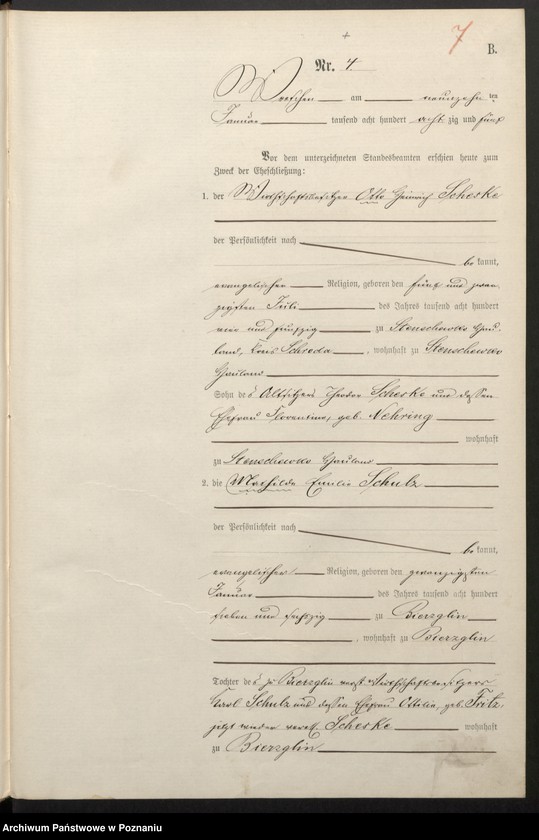 7
B.
Nr. 4.
Wreschen am neunzehnten
Januar tausend acht hundert achtzig und fünf
Vor dem unterzeichneten Standesbeamten erschien heute zum
Zweck der Eheschließung:
1. der Wirthschaftsbesitzer Otto Heinrich Scherke
der Persönlichkeit nach
be kannt,
evangelischer Religion, geboren den fünf und zwan-
zigsten Juli des Jahres tausend acht hundert
vier und fünfzig zu Stenschewko Hau-
land, Kreis Schroda, wohnhaft zu Stenschewko
Hauland
Sohn des Altsitzers Theodor Scherke und dessen
Ehefrau Florentine, geb. Nehring
wohnhaft
zu Stenschewko Hauland
2. die Mathilde Emilie Schulz
der Persönlichkeit nach
be kannt,
evangelischer Religion, geboren den zwanzigsten
Januar des Jahres tausend acht hundert
sieben und sechszig zu Bierzglin
, wohnhaft zu Bierzglin
Tochter des zu Bierzglin verst.
Karl Schulz und dessen Ehefrau Ottilie, geb. Fritz,
jetzt wieder Scherke wohnhaft
zu Bierzglin
Archiwum Państwowe w Poznaniu